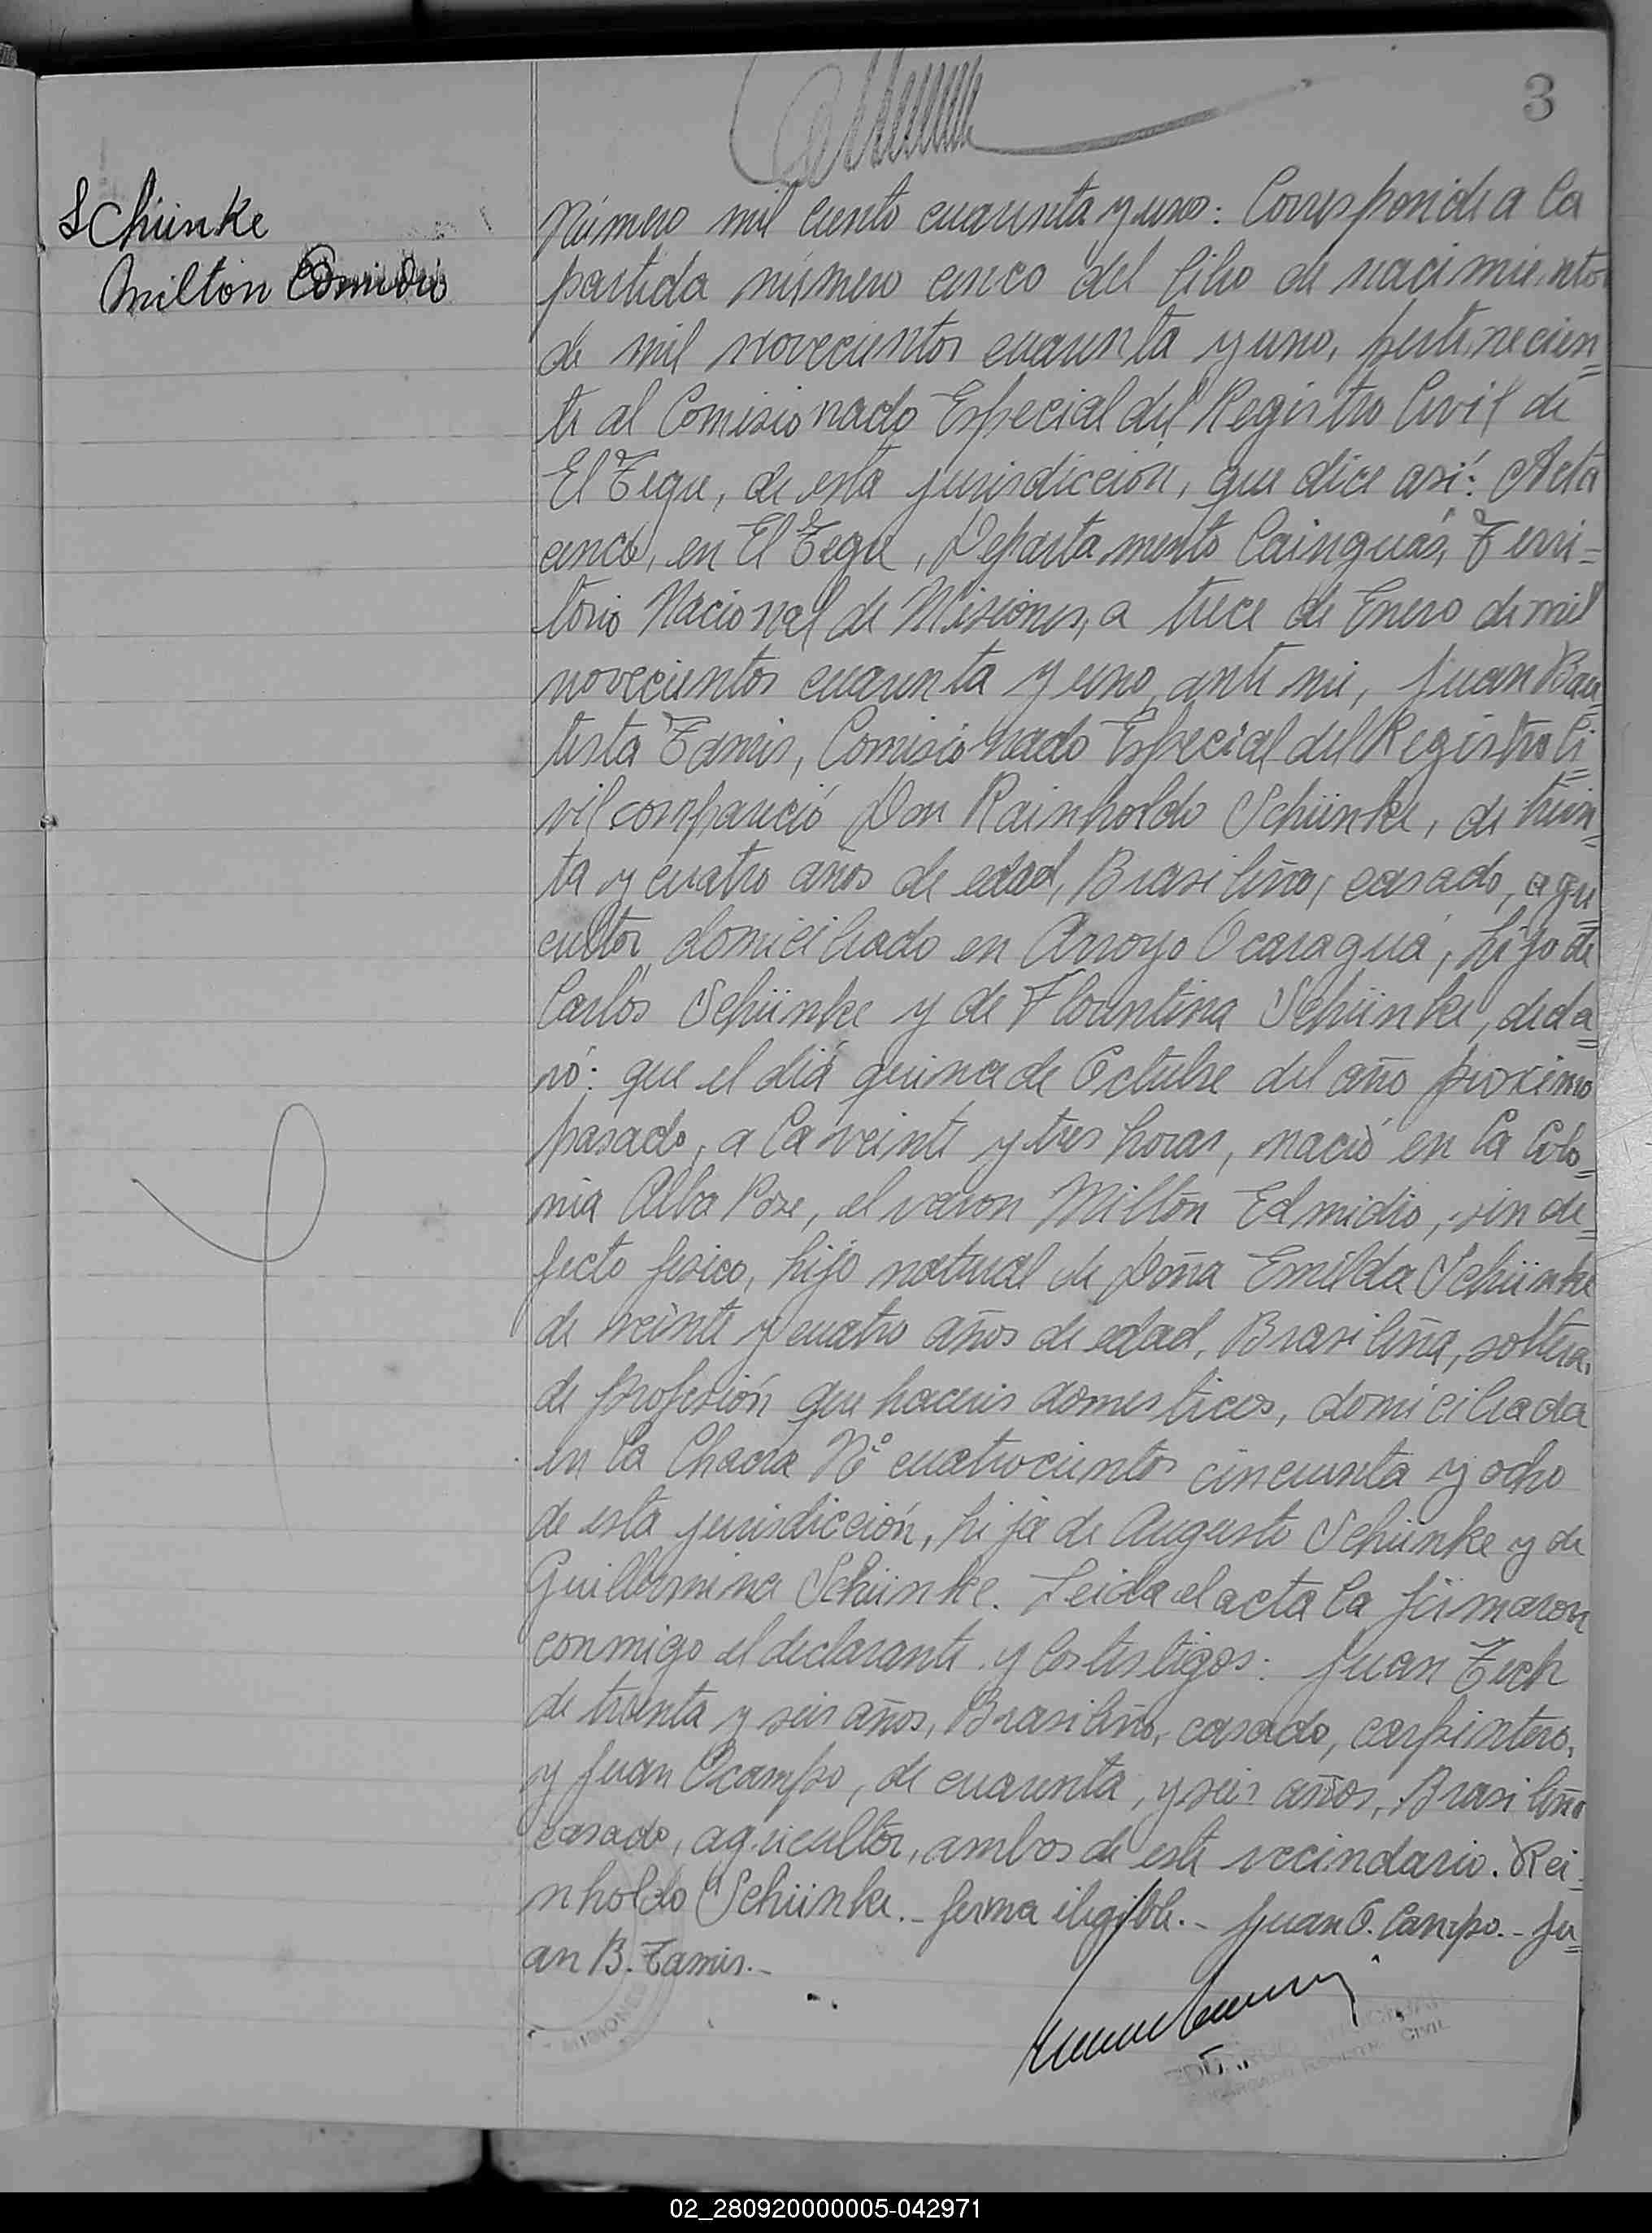 3
Schünke
Milton Edmidio
Número mil ciento cuarenta y uno: Corresponde a la
partida número cinco del libro de nacimientos
de mil novecientos cuarenta y uno, pertenecien=
te al Comisionado Especial del Registro Civil de
El Tegue, de esta jurisdicción, que dice así: Acta
cinco, en El Tegue, Departamento Cainguás, Terri=
torio Nacional de Misiones, a trece de Enero de mil
novecientos cuarenta y uno, ante mi, Juan Bau=
tista Tamis, Comisionado Especial del Registro Ci=
vil compareció Don Rainholdo Schünke, de trein=
ta y cuatro años de edad, Brasileño, casado, agri=
cultor, domiciliado en Arroyo Ocaragua, hijo de
Carlos Schünke y de Florentina Schünke, decla=
ró: que el diá quince de Octubre del año proximo
pasado, a las veinte y tres horas, nació en la Colo=
nia Alba Pose, el varon Milton Edmidio, sin de=
fecto fisico, hijo natural de Doña Emilda Schünke
de veinte y cuatro años de edad, Brasileña, soltera,
de profesión que haceres domesticos, domiciliada
en la Chacra Nº cuatrocientos cincuenta y ocho
de esta jurisdicción, hija de Augusto Schünke y de
Guillermina Schünke. Leida el acta la firmaron
conmigo el declarante y los testigos: Juan Zech
de treinta y seis años, Brasileño, casado, carpintero,
y Juan Ocampo, de cuarenta, y seis años, Brasileño
casado, agricultor, ambos de este vecindario. Rei=
nholdo Schünke.- firma ilegible.- Juan O. Campo.- Ju=
an B. Tamis.-
MISIONES
CIVIL
02_280920000005-042971